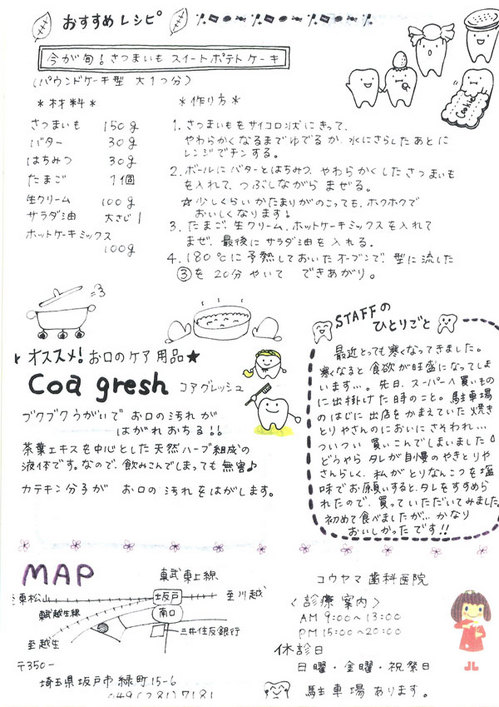 おすすめレシピ
今が旬!さつまいも スイートポテトケーキ
(パウンドケーキ型 大1つ分)
*材料*
さつまいも 150g
バター 30g
はちみつ 30g
たまご 1個
生クリーム 100g
サラダ油 大さじ1
ホットケーキミックス
100g
*作り方*
1. さつまいもをサイコロ状にきって、
やわらかくなるまでゆでるか、水にさらしたあとに
レンジでチンする。
2. ボールにバターとはちみつ、やわらかくしたさつまいも
を入れて、つぶしながら まぜる。
☆少しくらいかたまりがのこっても、ホクホクで
おいしくなります!
3. たまご、生クリーム、ホットケーキミックスを入れて
まぜ、最後にサラダ油を入れる。
4. 180℃に予熱しておいたオーブンで、型に流した
③を20分やいて できあがり。
オススメ!お口のケア用品★
Coa gresh コアグレッシュ
ブクブクうがいでお口の汚れが
はがれおちる!!
茶葉エキスを中心とした天然ハーブ組成の
液体です。なので、飲みこんでしまっても無害♪
カテキン分子が お口の汚れをはがします。
STAFFの
ひとりごと
最近とっても寒くなってきました。
寒くなると食欲が旺盛になってしま
います…。先日、スーパーへ買いもの
に出掛けた時のこと。駐車場
のはじに出店をかまえていた焼き
とりやさんのにおいにさそわれ…
ついつい買いこんでしまいました!
どうやらタレが自慢のやきとりや
さんらしく、私がとりなんこつを塩
味でお願いすると、タレをすすめら
れたので、買っていただいてみました。
初めて食べましたが…かなり
おいしかったです!!
MAP
東武東上線
至東松山
坂戸
至川越
東武越生線
南口
至越生
三井住友銀行
〒350-
埼玉県坂戸市緑町15-6
049(281)7181
コウヤマ歯科医院
<診療案内>
AM 9:00~13:00
PM 15:00~20:00
休診日
日曜・金曜・祝祭日
駐車場あります。